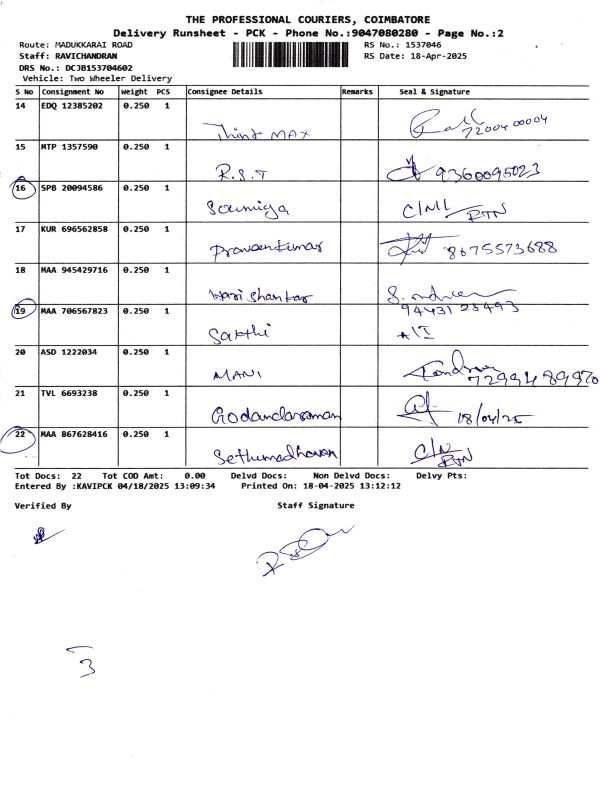 THE PROFESSIONAL COURIERS, COIMBATORE
Delivery Runsheet - PCK - Phone No.:9047080280 - Page No.:2
Route: MADUKKARAI ROAD RS No.: 1537046
Staff: RAVICHANDRAN RS Date: 18-Apr-2025
DRS No.: DCJB153704602
Vehicle: Two Wheeler Delivery
S No Consignment No Weight PCS Consignee Details Remarks Seal & Signature
14 EDQ 12385202 0.250 1
Think MAX 7200400004
15 MTP 1357590 0.250 1
R.S.T 9360095023
16 SPB 20094586 0.250 1
Soumiya C/NL RTN
17 KUR 696562858 0.250 1
Praveenkumar 8675573688
18 MAA 945429716 0.250 1
Hari Shankar
19 MAA 706567823 0.250 1 9443128493
Sakthi
20 ASD 1222034 0.250 1
MANI 7299489970
21 TVL 6693238 0.250 1
Godandaraman 18/04/25
22 MAA 867628416 0.250 1
Sethumadhavan C/N RTN
Tot Docs: 22 Tot COD Amt: 0.00 Delvd Docs: Non Delvd Docs: Delvy Pts:
Entered By :KAVIPCK 04/18/2025 13:09:34 Printed On: 18-04-2025 13:12:12
Verified By Staff Signature
3